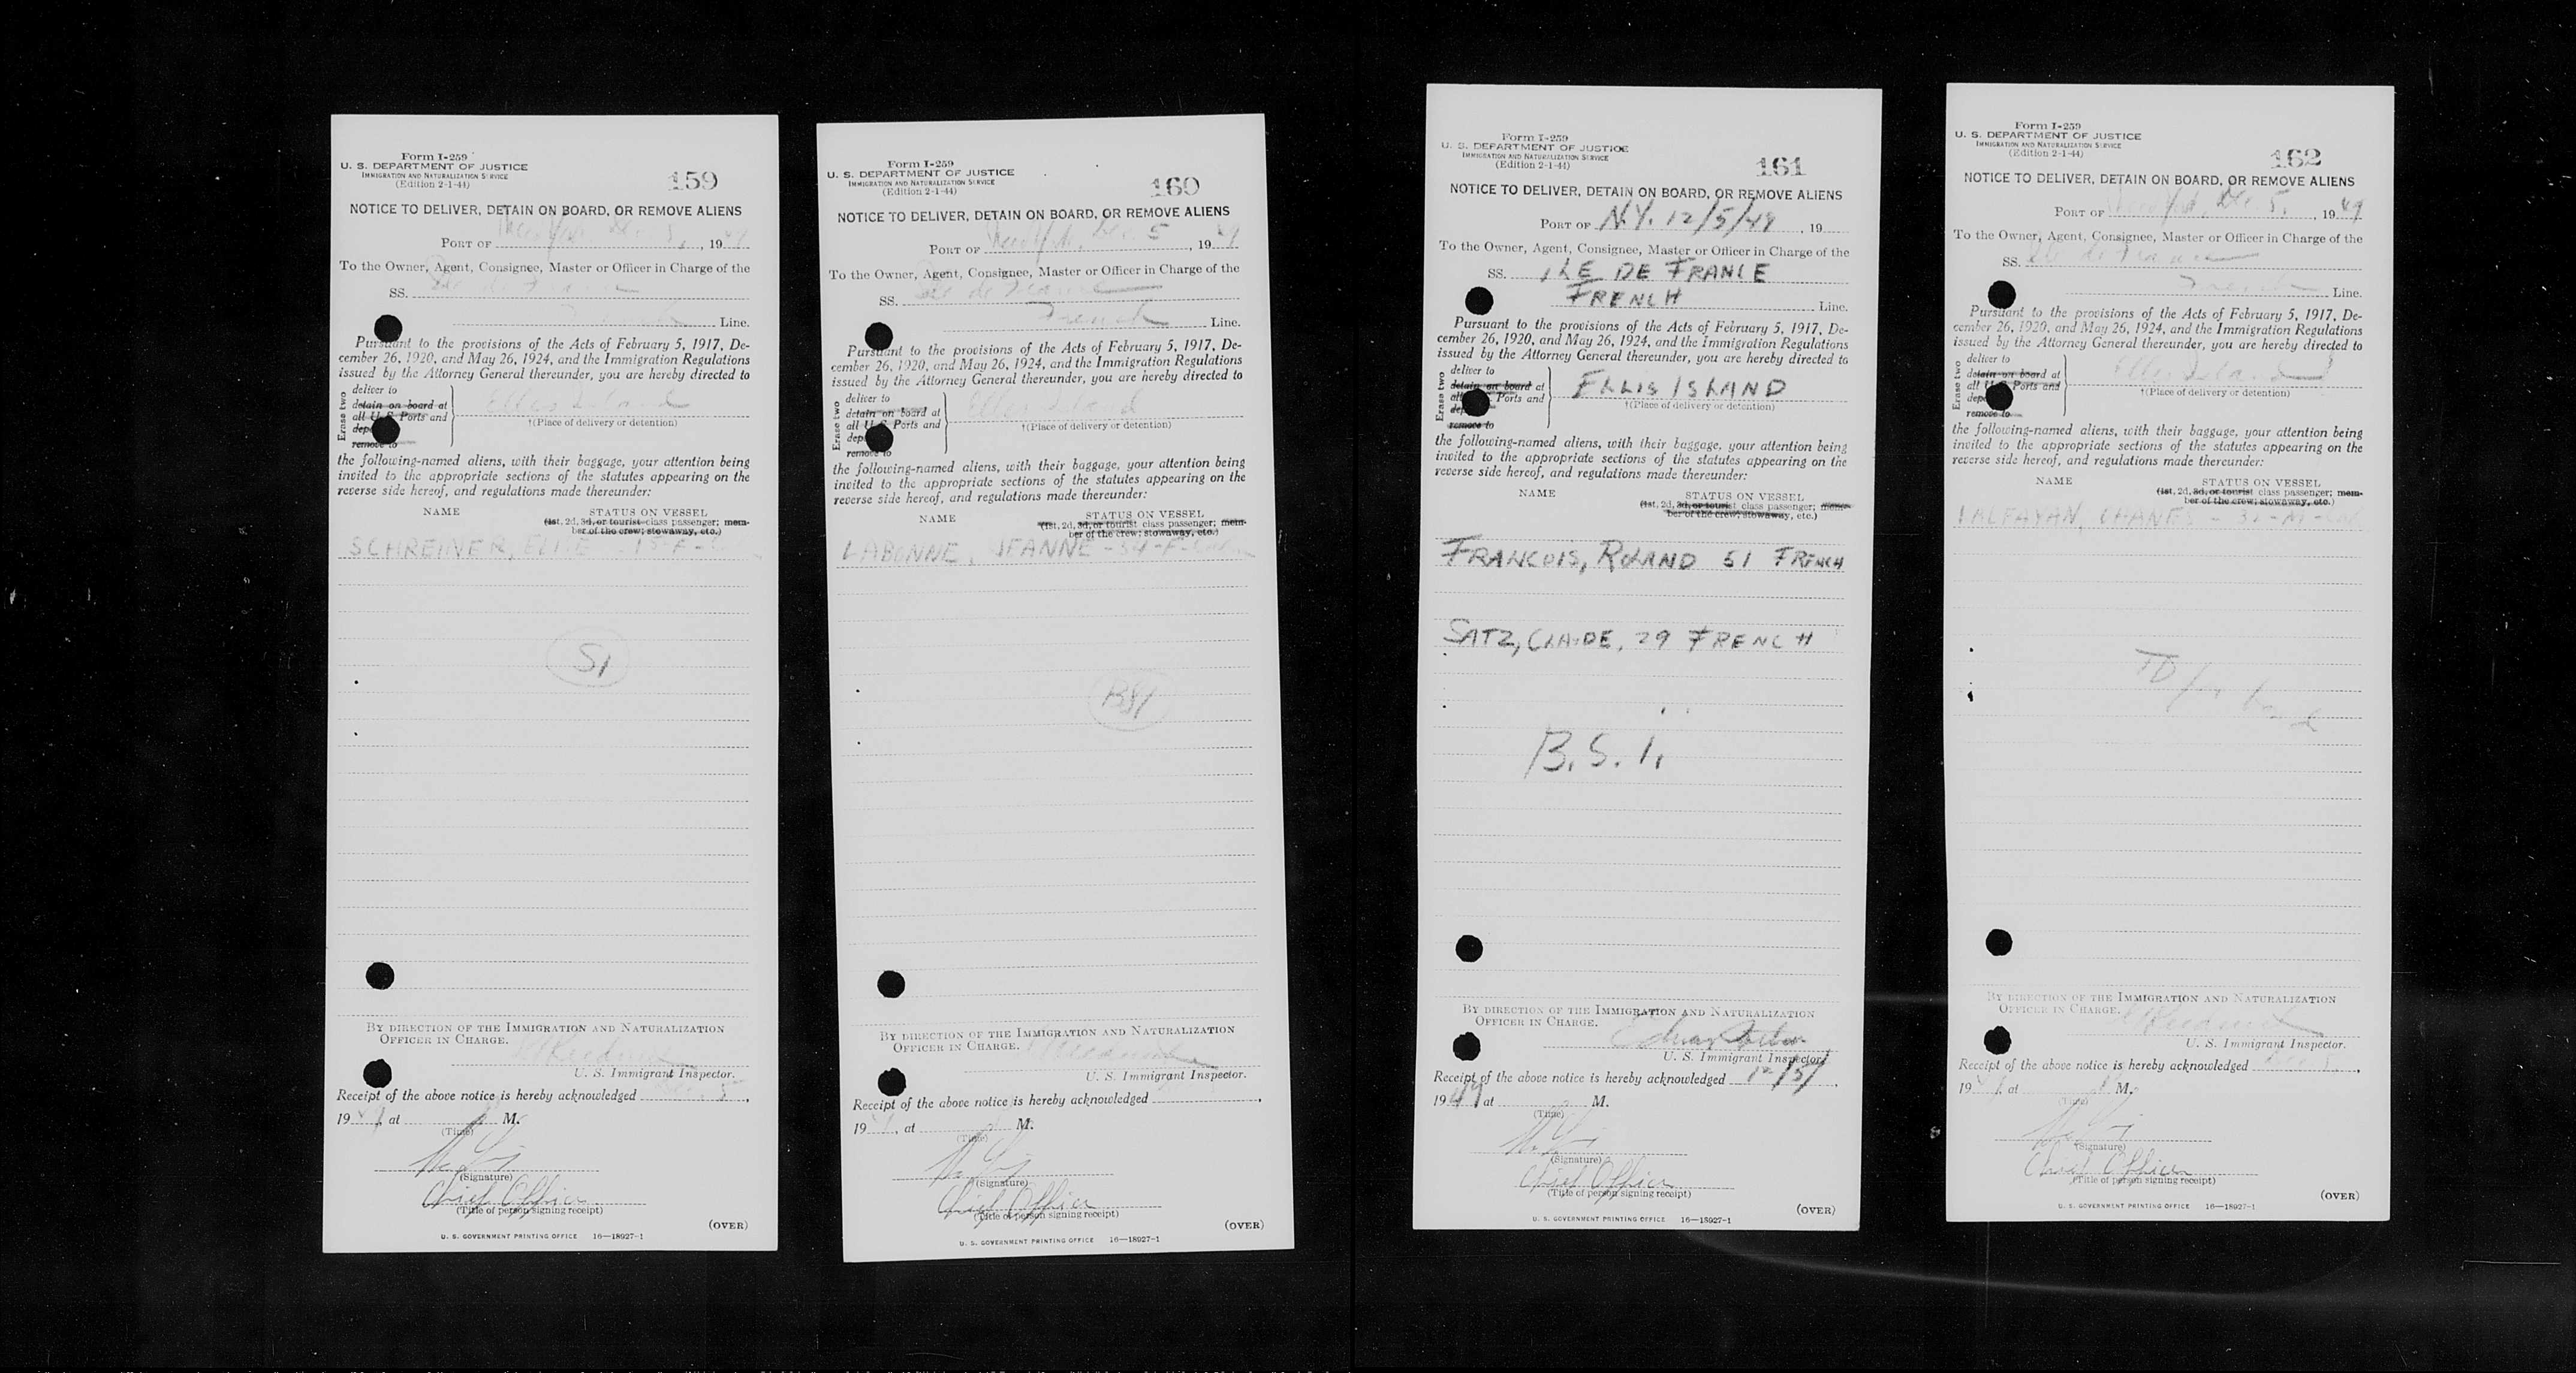 Form I-259
U. S. DEPARTMENT OF JUSTICE
IMMIGRATION AND NATURALIZATION SERVICE
(Edition 2-1-44)
159
NOTICE TO DELIVER, DETAIN ON BOARD, OR REMOVE ALIENS
PORT OF New York Dec 5, 1949
To the Owner, Agent, Consignee, Master or Officer in Charge of the
SS. Ile de France
French Line.
Pursuant to the provisions of the Acts of February 5, 1917, De-
cember 26, 1920, and May 26, 1924, and the Immigration Regulations
issued by the Attorney General thereunder, you are hereby directed to
Erase two
deliver to
detain on board at
all U.S. Ports and
remove to
Ellis Island
†(Place of delivery or detention)
the following-named aliens, with their baggage, your attention being
invited to the appropriate sections of the statutes appearing on the
reverse side hereof, and regulations made thereunder:
NAME
STATUS ON VESSEL
(1st, 2d, 3d, or tourist class passenger; mem-
ber of the crew; stowaway, etc.)
SCHREINER, - F -
SI
BY DIRECTION OF THE IMMIGRATION AND NATURALIZATION
OFFICER IN CHARGE.
U. S. Immigrant Inspector.
Receipt of the above notice is hereby acknowledged Dec. 5,
1949, at M.
(Time)
(Signature)
Chief Officer
(Title of person signing receipt)
(OVER)
U. S. GOVERNMENT PRINTING OFFICE 16—18927-1
Form I-259
U. S. DEPARTMENT OF JUSTICE
IMMIGRATION AND NATURALIZATION SERVICE
(Edition 2-1-44)
160
NOTICE TO DELIVER, DETAIN ON BOARD, OR REMOVE ALIENS
PORT OF New York, Dec 5, 1949
To the Owner, Agent, Consignee, Master or Officer in Charge of the
SS. Ile de France
French Line.
Pursuant to the provisions of the Acts of February 5, 1917, De-
cember 26, 1920, and May 26, 1924, and the Immigration Regulations
issued by the Attorney General thereunder, you are hereby directed to
Erase two
deliver to
detain on board at
all U.S. Ports and
remove to
Ellis Island
†(Place of delivery or detention)
the following-named aliens, with their baggage, your attention being
invited to the appropriate sections of the statutes appearing on the
reverse side hereof, and regulations made thereunder:
NAME
STATUS ON VESSEL
(1st, 2d, 3d, or tourist class passenger; mem-
ber of the crew; stowaway, etc.)
LABONNE, JEANNE - 34 - F -
BSI
BY DIRECTION OF THE IMMIGRATION AND NATURALIZATION
OFFICER IN CHARGE.
U. S. Immigrant Inspector.
Receipt of the above notice is hereby acknowledged
19 , at M.
(Time)
(Signature)
Chief Officer
(Title of person signing receipt)
(OVER)
U. S. GOVERNMENT PRINTING OFFICE 16—18927-1
Form I-259
U. S. DEPARTMENT OF JUSTICE
IMMIGRATION AND NATURALIZATION SERVICE
(Edition 2-1-44)
161
NOTICE TO DELIVER, DETAIN ON BOARD, OR REMOVE ALIENS
PORT OF N.Y. 12/5/49, 19
To the Owner, Agent, Consignee, Master or Officer in Charge of the
SS. ILE DE FRANCE
FRENCH Line.
Pursuant to the provisions of the Acts of February 5, 1917, De-
cember 26, 1920, and May 26, 1924, and the Immigration Regulations
issued by the Attorney General thereunder, you are hereby directed to
Erase two
deliver to
detain on board at
Ports and
remove to
ELLIS ISLAND
†(Place of delivery or detention)
the following-named aliens, with their baggage, your attention being
invited to the appropriate sections of the statutes appearing on the
reverse side hereof, and regulations made thereunder:
NAME
STATUS ON VESSEL
(1st, 2d, 3d, or tourist class passenger; mem-
ber of the crew; stowaway, etc.)
FRANCOIS, ROLAND 51 FRENCH
SATZ, CLAUDE, 29 FRENCH
B.S.I.
BY DIRECTION OF THE IMMIGRATION AND NATURALIZATION
OFFICER IN CHARGE.
U. S. Immigrant Inspector.
Receipt of the above notice is hereby acknowledged 12/5/,
1949 at M.
(Time)
(Signature)
Chief Officer
(Title of person signing receipt)
(OVER)
U. S. GOVERNMENT PRINTING OFFICE 16—18927-1
Form I-259
U. S. DEPARTMENT OF JUSTICE
IMMIGRATION AND NATURALIZATION SERVICE
(Edition 2-1-44)
162
NOTICE TO DELIVER, DETAIN ON BOARD, OR REMOVE ALIENS
PORT OF New York, Dec. 5, 1949
To the Owner, Agent, Consignee, Master or Officer in Charge of the
SS. Ile de France
French Line.
Pursuant to the provisions of the Acts of February 5, 1917, De-
cember 26, 1920, and May 26, 1924, and the Immigration Regulations
issued by the Attorney General thereunder, you are hereby directed to
Erase two
deliver to
detain on board at
all U.S. Ports and
remove to
Ellis Island
†(Place of delivery or detention)
the following-named aliens, with their baggage, your attention being
invited to the appropriate sections of the statutes appearing on the
reverse side hereof, and regulations made thereunder:
NAME
STATUS ON VESSEL
(1st, 2d, 3d, or tourist class passenger; mem-
ber of the crew; stowaway, etc.)
TD
BY DIRECTION OF THE IMMIGRATION AND NATURALIZATION
OFFICER IN CHARGE.
U. S. Immigrant Inspector.
Receipt of the above notice is hereby acknowledged Dec 5,
19 , at M.
(Time)
(Signature)
Chief Officer
(Title of person signing receipt)
(OVER)
U. S. GOVERNMENT PRINTING OFFICE 16—18927-1